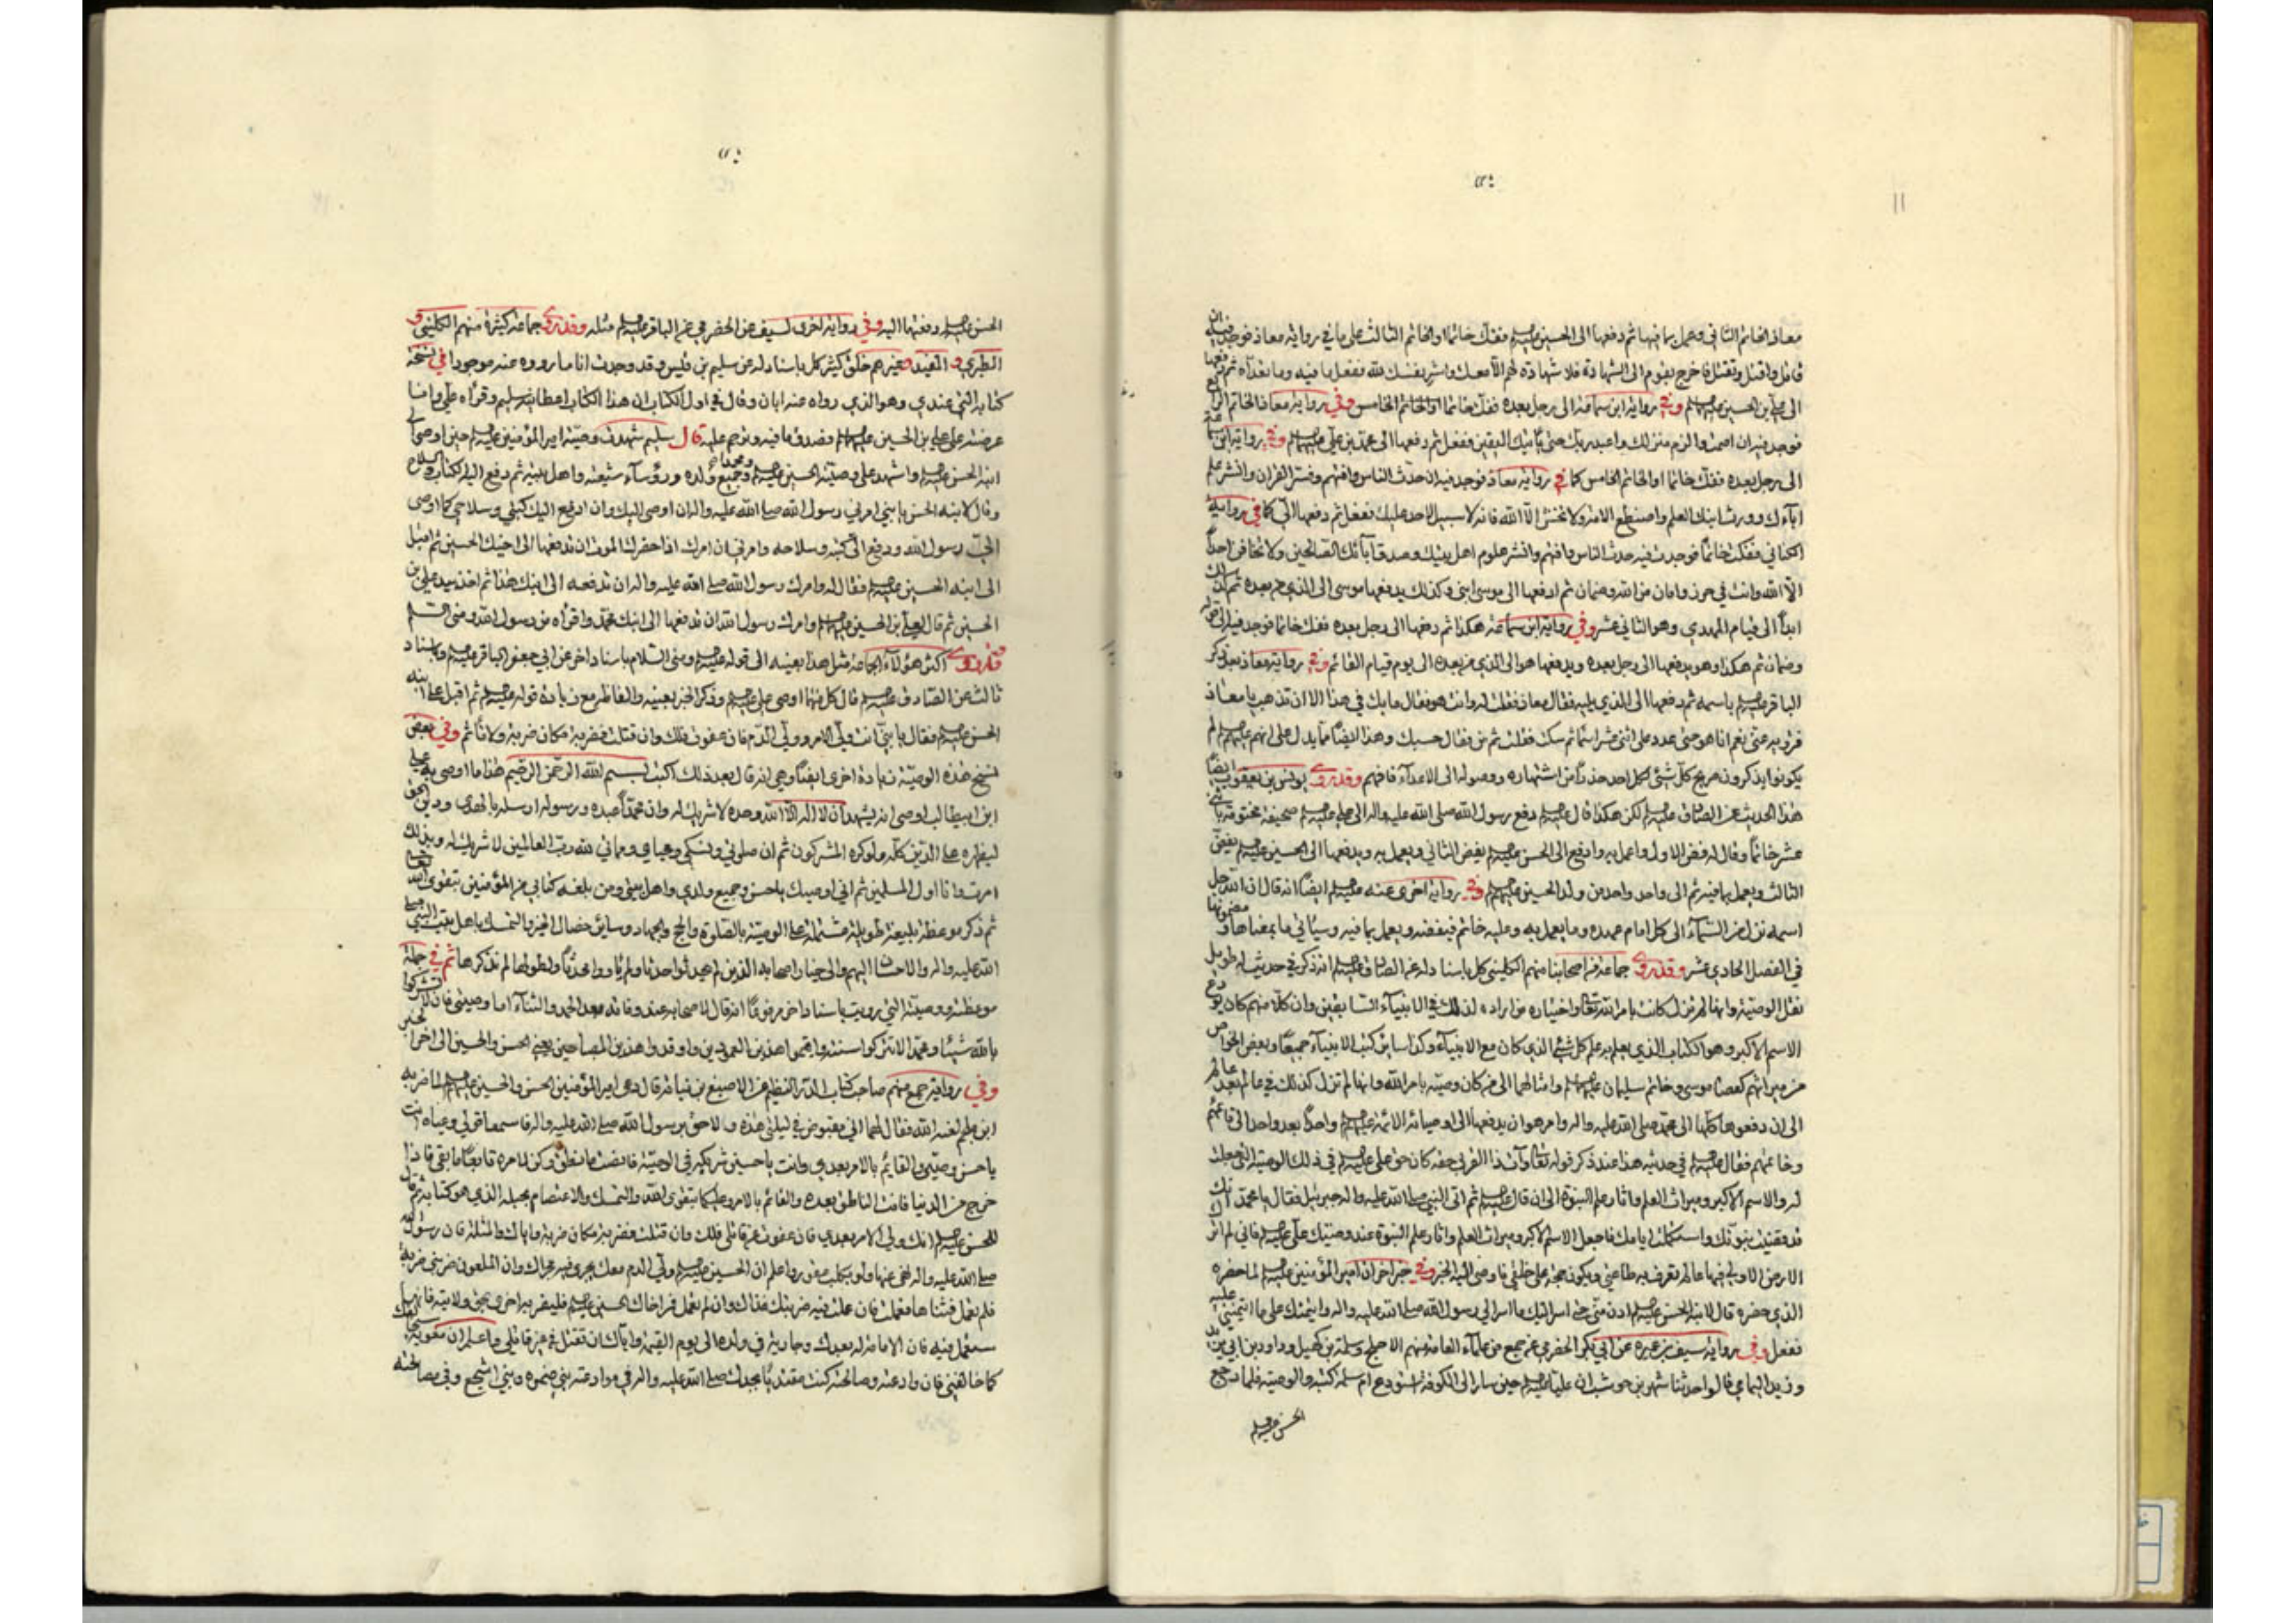 ١١
معاذ الخاتم الثاني وعمل بما فيها ثم دفعها الى الحسين عليهالسلام ففك خاتما او الخاتم الثالث على ما في رواية معاذ فوجد فيه ان
قاتل واقتل وتقتل فاخرج بقوم الى الشهادة فلا شهادة لهم الا معك واشر نفسك لله ففعل ما فيه وما تعداه ثم دفعها
الى علي بن الحسين عليهماالسلام وفي رواية ابن سماعة الى رجل بعده ففك خاتما او الخاتم الخامس وفي رواية معاذ الخاتم الرابع
فوجد فيه ان اصمت والزم منزلك واعبد ربك حتى يأتيك اليقين ففعل ثم دفعها الى محمد بن علي عليهماالسلام وفي رواية ابن سماعة
الى رجل بعده ففك خاتما او الخاتم الخامس كما في رواية معاذ فوجد فيه ان حدث الناس وافتهم وفسر القران وانشر علم
اباءك وورث ابنك العلم واصطنع الامة ولا تخش الا الله فانه لا سبيل لاحد عليك ففعل ثم دفعها الي كما في رواية
الكناني ففككت خاتما فوجدت فيه حدث الناس وافتهم وانشر علوم اهل بيتك وصدق آبائك الصالحين ولا تخافن احدا
الا الله وانت في حرز وامان من الله وضمان ثم ادفعها الى موسى ابني وكذلك يدفعها موسى الى الذي من بعده ثم كذلك
ابدا الى قيام المهدي وهو الثاني عشر وفي رواية ابن سماعة هكذا ثم دفعها الى رجل بعده ففك خاتما فوجد فيه
وضمان ثم هكذا وهو يدفعها الى رجل بعده ويدفعها هو الى الذي من بعده الى يوم قيام القائم وفي رواية معاذ بعد ذكر
الباقر عليهالسلام باسمه ثم دفعها الى الذي يليه فقال معاذ فقلت له وانت هو فقال ما بك في هذا الا ان تذهب يا معاذ
فترويه عني نعم انا هو حتى عدد علي اثنى عشر اسما ثم سكت فقلت ثم من فقال حسبك وهذا ايضا مما يدل على انهم عليهمالسلام لم
يكونوا يذكرون صريح كل شئ لكل احد حذرا من اشتهاره ووصوله الى الاعداء فافهم وقد روى يونس بن يعقوب ايضا
هذا الحديث عن الصادق عليهالسلام لكن هكذا قال عليهالسلام دفع رسول الله صلى الله عليه واله الى علي عليهالسلام صحيفة مختومة باثني
عشر خاتما وقال له فض الاول واعمل به وادفع الى الحسن عليهالسلام يفض الثاني ويعمل به ويدفعها الى الحسين عليهالسلام يفض
الثالث ويعمل بما فيه ثم الى واحد واحد من ولد الحسين عليهمالسلام وفي رواية اخرى عنه عليهالسلام ايضا انه قال ان الله جل
اسمه نزل من السماء الى كل امام عهده وما يعمل به وعليه خاتم فيفضه ويعمل بما فيه وسيأتي ما بمعناها و مضمونها
في الفصل الحادي عشر وقد روى جماعة من اصحابنا منهم الكليني كل باسناد له عن الصادق عليهالسلام انه ذكر في حديث له طويل
نقل الوصية وانها لم تزل كانت بامر الله تعالى واختياره من اراده لذلك في الانبياء السابقين وان كلا منهم كان يودع
الاسم الاكبر وهو الكتاب الذي يعلم به علم كل شئ الذي كان مع الانبياء وكذا سائر كتب الانبياء جميعا وبعض الخواص
من ميراثهم كعصا موسى وخاتم سليمان عليهماالسلام وامثالهما الى من كان وصيه بامر الله وانها لم تزل كذلك في عالم بعد عالم
الى ان دفعوها كلها الى محمد صلى الله عليه واله وامر هو ان يدفعها الى اوصيائه الائمة عليهمالسلام واحدا بعد واحد الى قائمهم
وخاتمهم فقال عليهالسلام في حديثه هذا عند ذكر قوله تعالى وآت ذا القربى حقه كان حق علي عليهالسلام في ذلك الوصية التي جعلت
له والاسم الاكبر وميراث العلم واثار علم النبوة الى ان قال عليهالسلام ثم اتى النبي صلى الله عليه واله جبرئيل فقال يا محمد انك
قد قضيت نبوتك واستكملت ايامك فاجعل الاسم الاكبر وميراث العلم واثار علم النبوة عند وصيتك علي عليهالسلام فاني لم اترك
الارض الا ولي فيها عالم تعرف به طاعتي ويكون حجة على خلقي فاوصى اليه الخبر وفي خبر اخر ان امير المؤمنين عليهالسلام لما حضره
الذي حضره قال لابنه الحسن عليهالسلام ادن مني حتى اسر اليك ما اسر الي رسول الله صلى الله عليه واله وائتمنك على ما ائتمنني عليه
ففعل وفي رواية سيف بن عميرة عن ابي بكر الحضرمي عن جمع من علماء العامة منهم الاجلح وسلمة بن كهيل وداود بن ابي يزيد
وزيد اليمامي قالوا حدثنا شهر بن حوشب ان عليا عليهالسلام حين سار الى الكوفة استودع ام سلمة كتبه والوصية فلما رجع
الحسن عليهالسلام
الحسن عليهالسلام دفعتها اليه وفي رواية اخرى لسيف عن الحضرمي عن الباقر عليهالسلام مثله وقد روى جماعة كثيرة منهم الكليني و
الطبري و المفيد وغيرهم خلق كثير كل باسناد له عن سليم بن قيس وقد وجدت انا ما رووه عنه موجودا في نسخة
كتابه التي عندي وهو الذي رواه عنه ابان وقال في اول الكتاب ان هذا الكتاب اعطانيه سليم وقرأه علي وانا
عرضته على علي بن الحسين عليهماالسلام وصدق ما فيه وترحم عليه قال سليم شهدت وصية امير المؤمنين عليهالسلام حين اوصى الى
ابنه الحسن عليهالسلام واشهد على وصيته الحسين عليهالسلام ومحمدا وجميع ولده ورؤساء شيعته واهل بيته ثم دفع اليه الكتاب والسلاح
وقال لابنه الحسن يا بني امرني رسول الله صلى الله عليه واله ان اوصي اليك وان ادفع اليك كتبي وسلاحي كما اوصى
الي رسول الله ودفع الي كتبه وسلاحه وامرني ان امرك اذا حضرك الموت ان تدفعها الى اخيك الحسين ثم اقبل
الى ابنه الحسين عليهالسلام فقال له وامرك رسول الله صلى الله عليه واله ان تدفعه الى ابنك هذا ثم اخذ بيد علي بن
الحسين ثم قال لعلي بن الحسين عليهماالسلام وامرك رسول الله ان تدفعها الى ابنك محمد واقرأه من رسول الله ومني السلام
وقد روى اكثر هؤلاء الجماعة مثل هذا بعينه الى قوله عليهالسلام ومني السلام باسناد اخر عن ابي جعفر الباقر عليهالسلام وباسناد
ثالث عن الصادق عليهالسلام قال كل منهما اوصى علي عليهالسلام وذكر الخبر بعينه والفاظه مع زيادة قوله عليهالسلام ثم اقبل على ابنه
الحسن عليهالسلام فقال يا بني انت ولي الامر وولي الدم فان عفوت فلك وان قتلت فضربة مكان ضربة ولا تأثم وفي بعض
نسخ هذه الوصية زيادة اخرى ايضا وهي انه قال بعد ذلك اكتب بسم الله الرحمن الرحيم هذا ما اوصى به علي
ابن ابيطالب اوصى انه يشهد ان لا اله الا الله وحده لا شريك له وان محمدا عبده ورسوله ارسله بالهدى ودين الحق
ليظهره على الدين كله ولو كره المشركون ثم ان صلوتي ونسكي ومحياي ومماتي لله رب العالمين لا شريك له وبذلك
امرت وانا اول المسلمين ثم اني اوصيك يا حسن وجميع ولدي واهل بيتي ومن بلغه كتابي من المؤمنين بتقوى الله
ثم ذكر موعظة بليغة طويلة مشتملة على الوصية بالصلوة والحج والجهاد وسائر خصال الخير والتمسك باهل بيت النبي صلى
الله عليه واله والاحسان اليهم والى خيار اصحابه الذين لم يحدثوا حدثا ولم يأووا محدثا ولطولها لم نذكرها ثم في جملة
موعظته ووصيته التي رويت باسناد اخر مرفوعا انه قال لاصحابه عند وفاته بعد الحمد والثناء اما وصيتي فان لا تشركوا
بالله شيئا ومحمدا لا تتركوا سنته اقيموا هذين العمودين واوقدوا هذين المصباحين يعني الحسن والحسين الى اخر الخبر
وفي رواية جمع منهم صاحب كتاب الدر النظيم عن الاصبغ بن نباتة قال دعا امير المؤمنين الحسن والحسين عليهماالسلام لما ضربه
ابن ملجم لعنه الله فقال لهما اني مقبوض في ليلتي هذه ولاحق برسول الله صلى الله عليه واله فاسمعا قولي وعياه انت
يا حسن وصيي والقايم بالامر بعدي وانت يا حسين شريكه في الوصية فانصت ما نطق وكن لامره تابعا ما بقي فاذا
خرج من الدنيا فانت الناطق بعده والقائم بالامر وعليكما بتقوى الله والتمسك والاعتصام بحبله الذي هو كتابه ثم قال
للحسن عليهالسلام انك ولي الامر بعدي فان عفوت عن قاتلي فلك وان قتلت فضربة مكان ضربة واياك والمثلة فان رسول الله
صلى الله عليه واله نهى عنها ولو بكلب عقور واعلم ان الحسين عليهالسلام ولي الدم معك يجري فيه مجراك وان الملعون ضربني ضربة
فلم تعمل فثناها فعملت فان عملت فيه ضربتك فذاك وان لم تعمل فمر اخاك الحسين عليهالسلام فليضربه اخرى بحق ولايته فانها
ستعمل فيه فان الامامة له بعدك وجارية في ولده الى يوم القيمة واياك ان تقتل في غير قاتلي واعلم ان معوية
كما خالفني فان وادعته وصالحته كنت مقتديا بجدك صلى الله عليه واله في موادعته بني ضمرة وبني اشجع وفي مصالحته